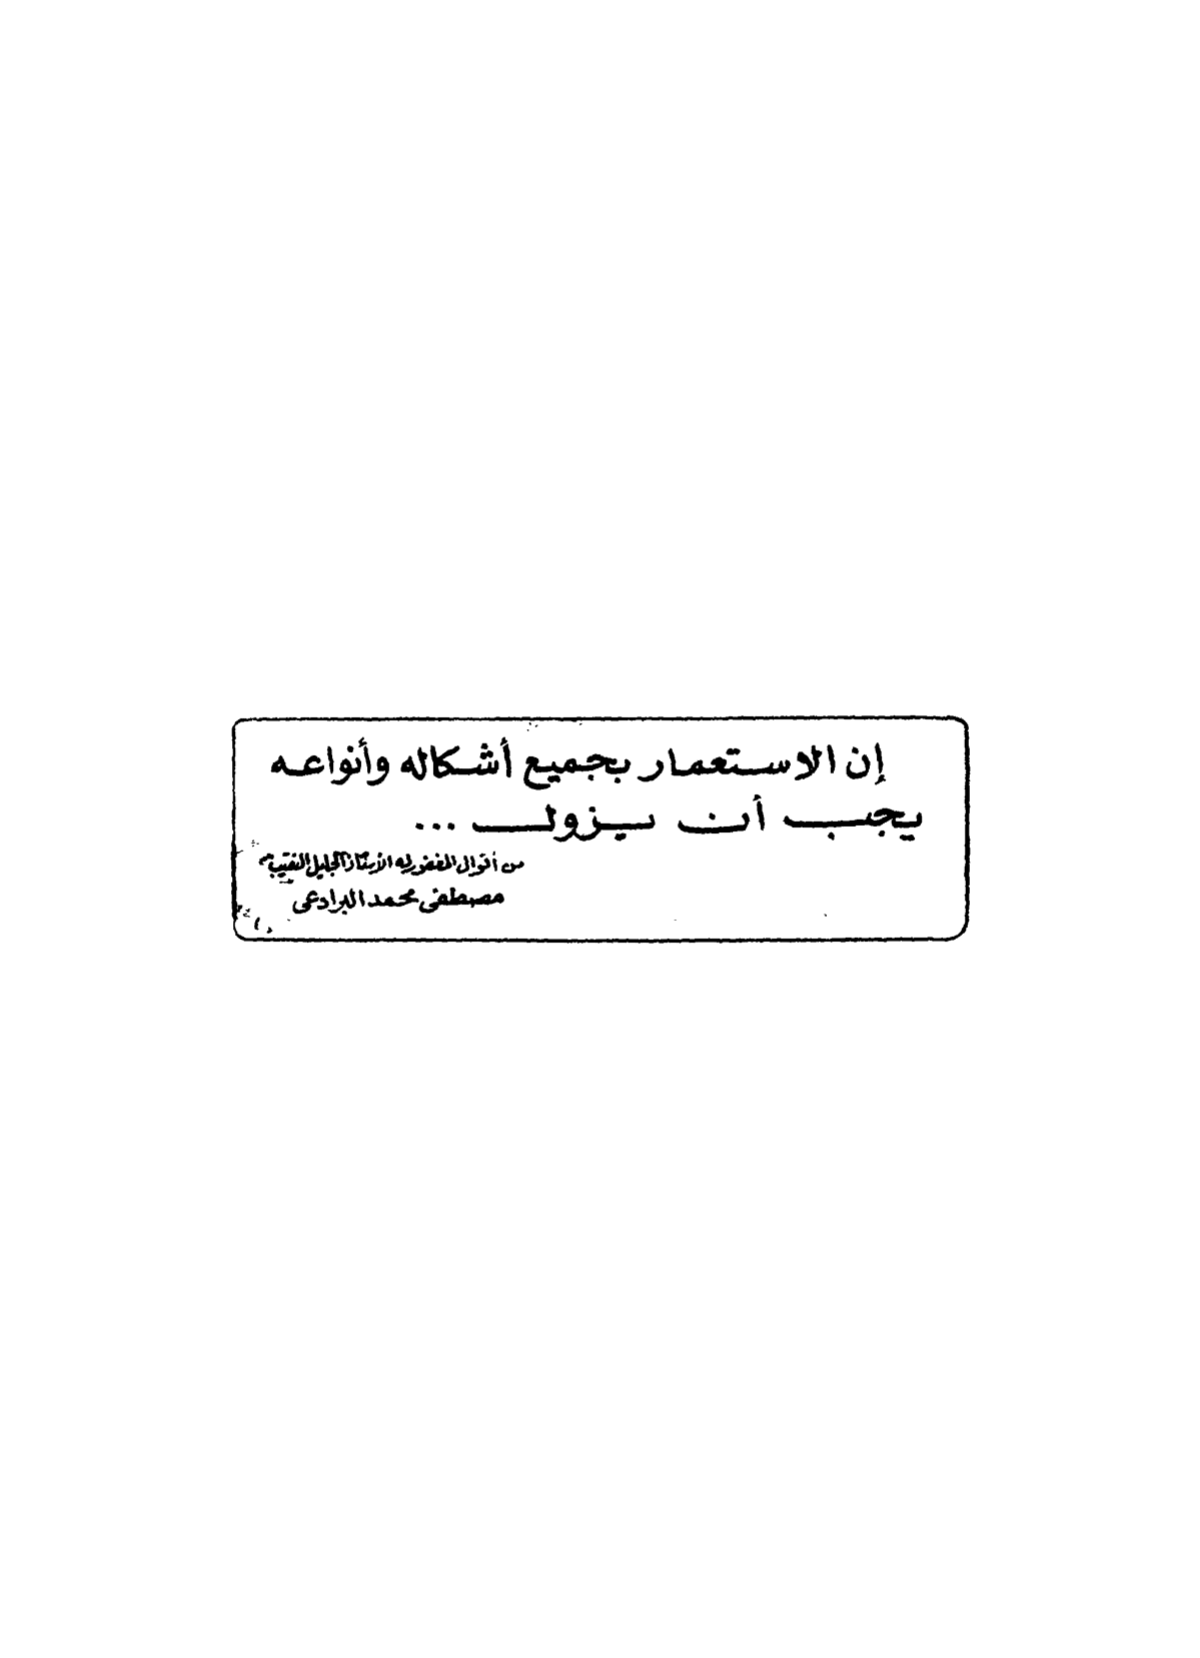 إن الاستعمار بجميع أشكاله وأنواعه
يجب أن يزول ...
من أقوال المغفور له الأستاذ الجليل النقيب
مصطفى محمد البرادعى